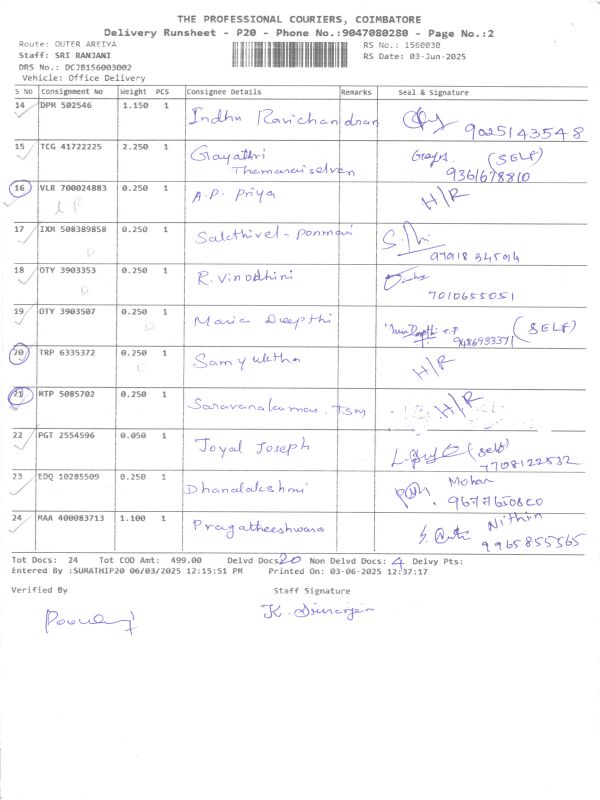 THE PROFESSIONAL COURIERS, COIMBATORE
Delivery Runsheet - P20 - Phone No.:9047080280 - Page No.:2
Route: OUTER AREIYA
RS No.: 1560030
Staff: SRI RANJANI
RS Date: 03-Jun-2025
DRS No.: DCJB156003002
Vehicle: Office Delivery
S No Consignment No Weight PCS Consignee Details Remarks Seal & Signature
14 DPM 502546 1.150 1 Indhu Ravichandran 9025143548
15 TCG 41722225 2.250 1 Gayathri Thamaraiselvan (SELF) 9361678810
16 VLR 700024883 0.250 1 A.P. Priya H/R
17 IXM 508389858 0.250 1 Sakthivel - Ponmani
18 OTY 3903353 0.250 1 R. Vinodhini 7010655051
19 OTY 3903507 0.250 1 Maria Deepthi (SELF)
20 TRP 6335372 0.250 1 Samyuktha H/R
21 MTP 5085702 0.250 1 Saravanakumar. TSM H/R
22 PGT 2554596 0.050 1 Joyal Joseph (self) 7708122532
23 EDQ 10285509 0.250 1 Dhanalakshmi Mohan
24 MAA 400083713 1.100 1 Pragatheeshwara Nithin 9965855565
Tot Docs: 24 Tot COD Amt: 499.00 Delvd Docs: 20 Non Delvd Docs: 4 Delvy Pts:
Entered By :SUMATHIP20 06/03/2025 12:15:51 PM Printed On: 03-06-2025 12:37:17
Verified By Staff Signature